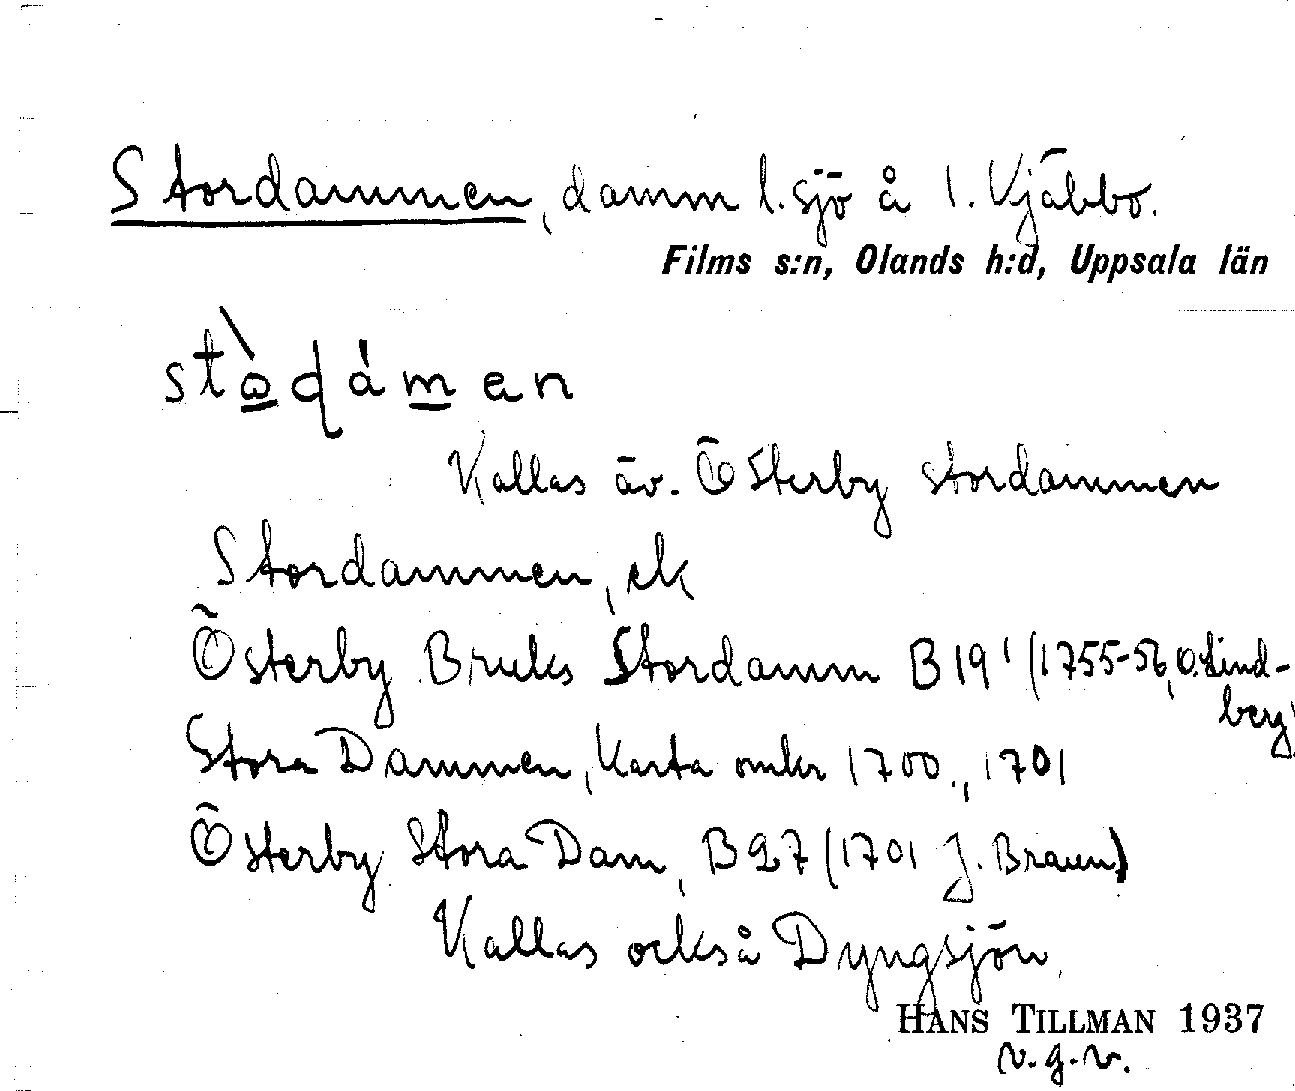 Stordammen, damm l. sjö å 1. Vjäbbo.
Films s:n, Olands h:d, Uppsala län
Kallas äv. Österby stordammen
Stordammen, ek
Österby Bruks Stordamm B 19' (1755-56, O. Lind-
berg)
Stora Dammen, Karta omkr 1700., 1701
Österby Stora Dam, B27 (1701 J. Braun)
Kallas också Dyngsjön.
HANS TILLMAN 1937
v.g.v.